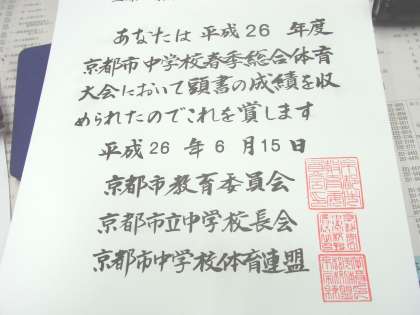 あなたは 平成26 年度
京都市中学校春季総合体育
大会において頭書の成績を収
められたのでこれを賞します
平成26 年 6 月 15 日
京都市教育委員会
京都市立中学校長会
京都市中学校体育連盟